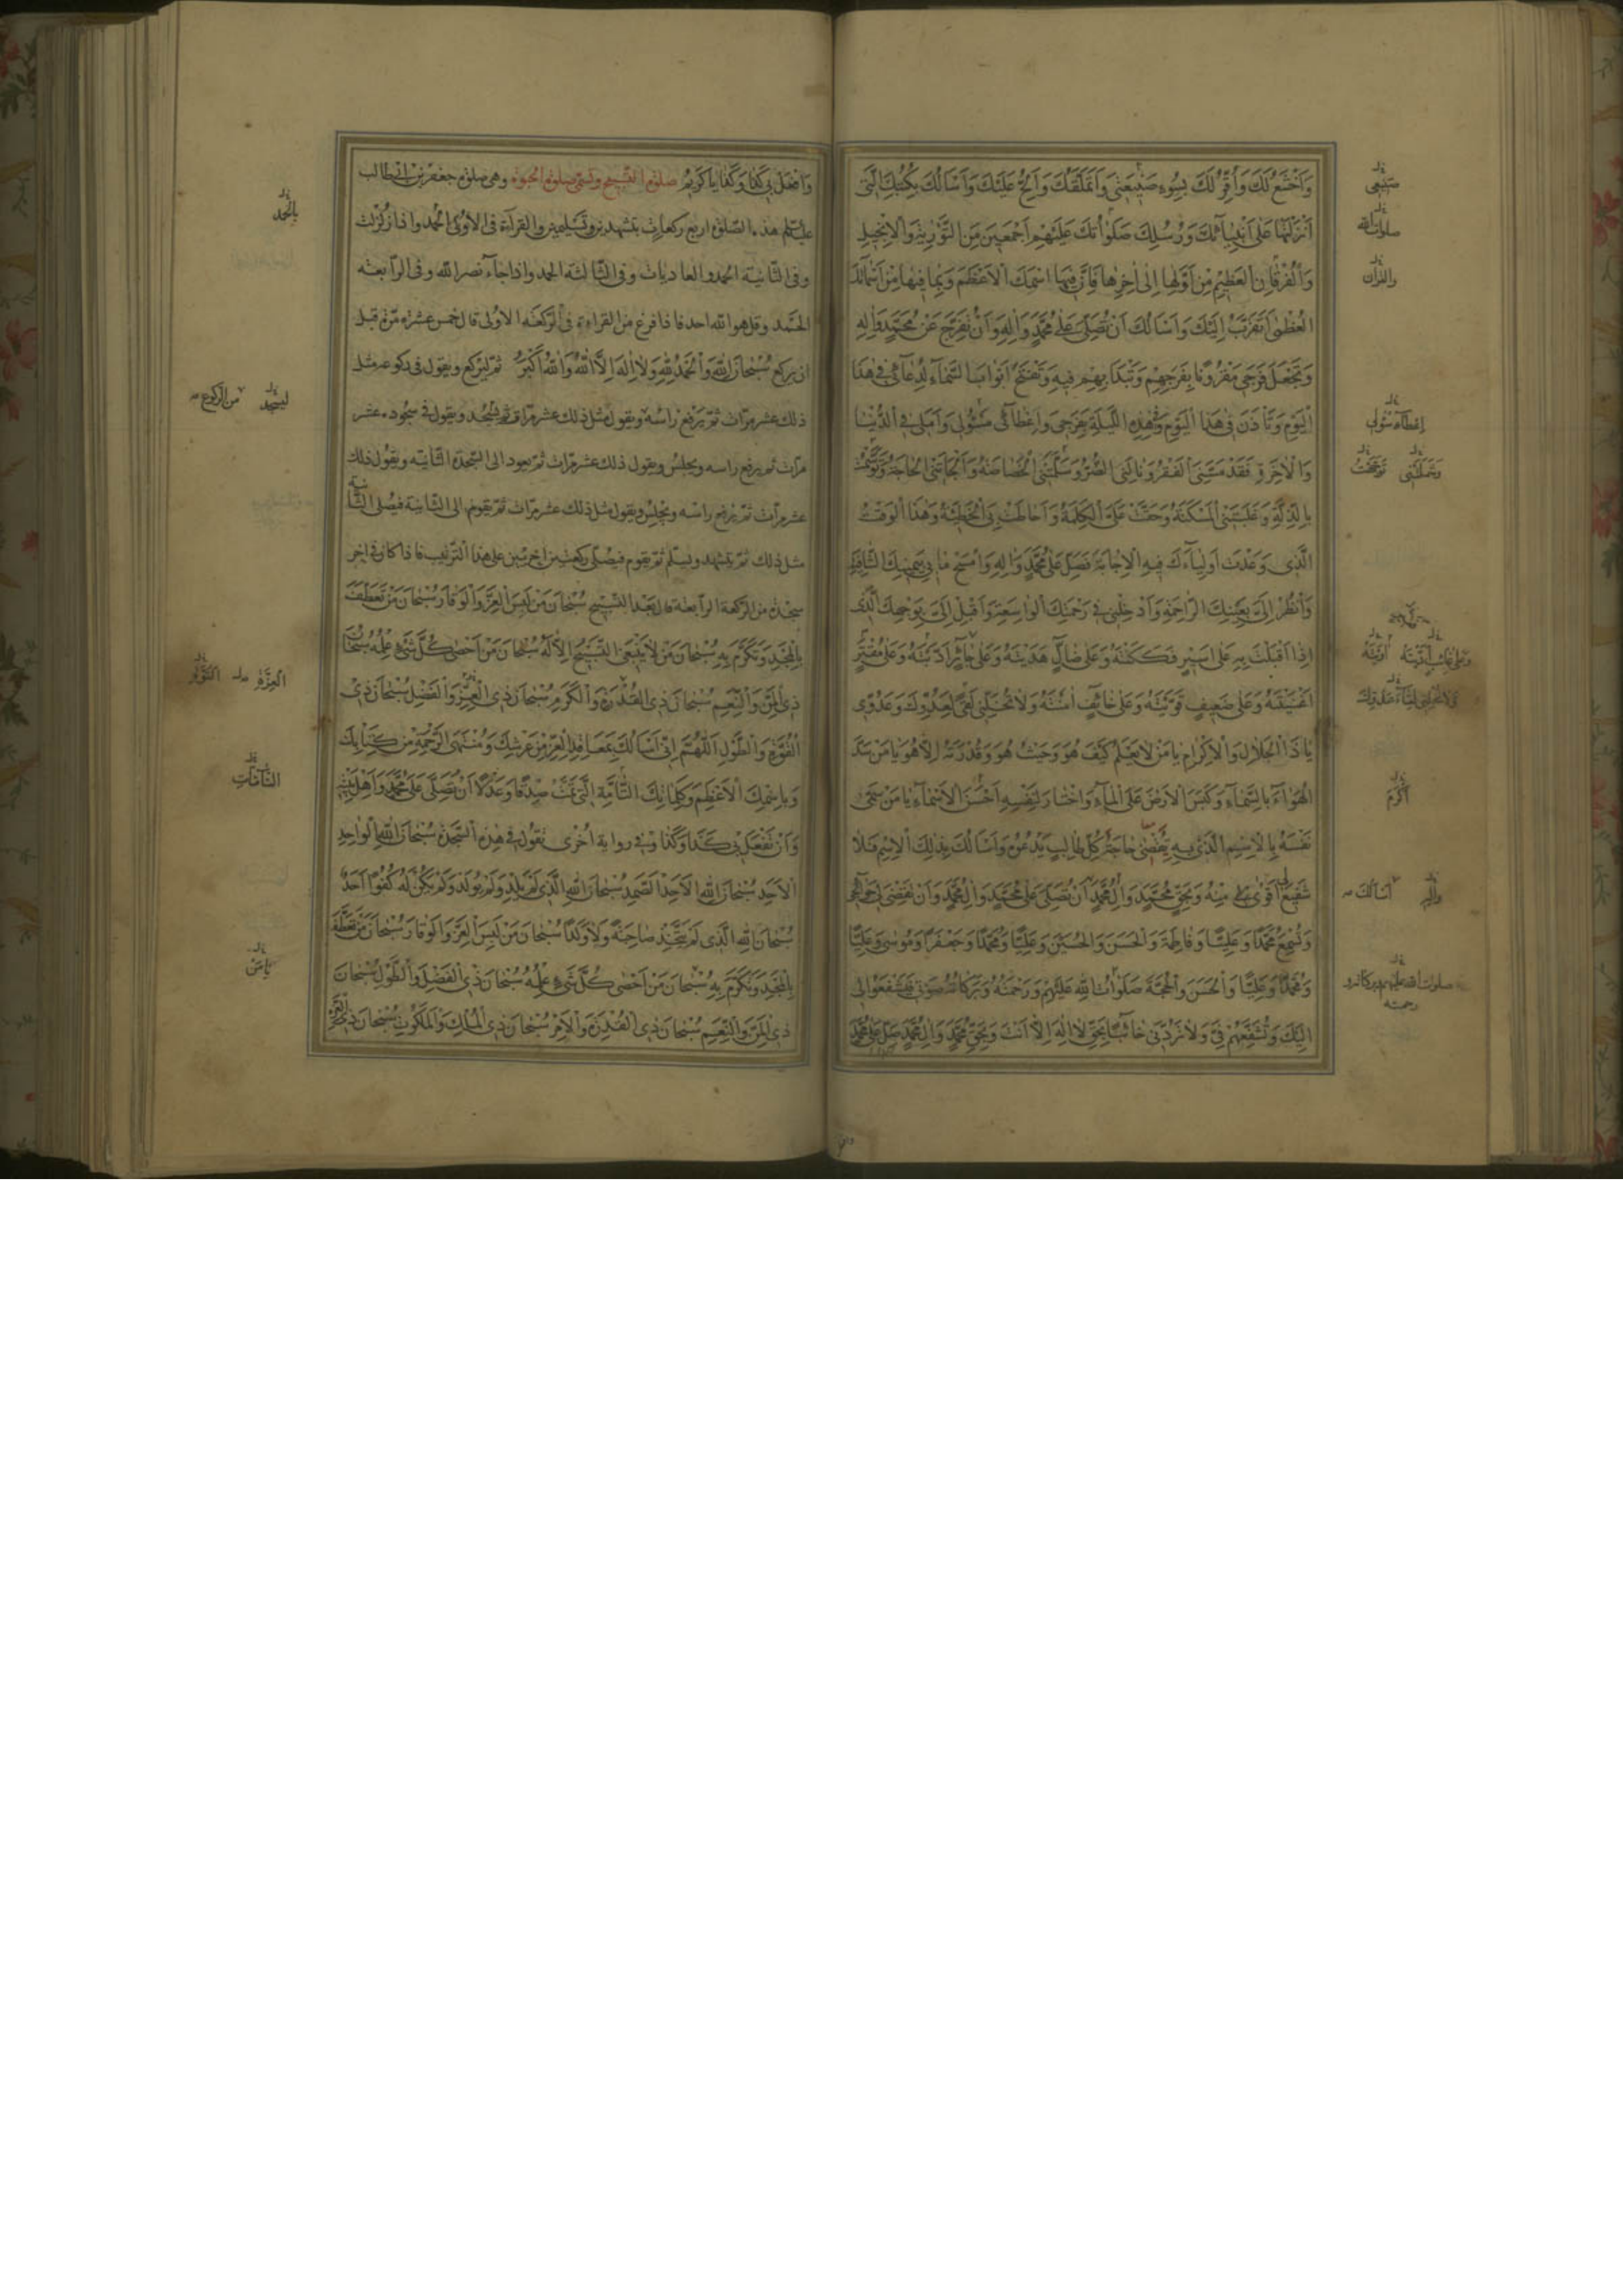 وَاَخْشَعُ لَكَ وَاُقِرُّ لَكَ بِسُوءِ صَنِيعَتى وَاَتَمَلَّقُكَ وَاُلِحُّ عَلَيْكَ وَاَسْاَلُكَ بِكُتُبِكَ الَّتى
اَنْزَلْتَها عَلى اَنْبِيآئِكَ وَرُسُلِكَ صَلَواتُكَ عَلَيْهِمْ اَجْمَعينَ مِنَ التَّوْريةِ وَالْاِنْجيلِ
وَالْفُرْقانِ الْعَظيمِ مِنْ اَوَّلِها اِلى اخِرِها فَاِنَّ فيهَا اسْمَكَ الْاَعْظَمَ وَبِما فيها مِنْ اَسْمآئِكَ
الْعُظْمى اَتَقَرَّبُ اِلَيْكَ وَاَسْاَلُكَ اَنْ تُصَلِّىَ عَلى مُحَمَّدٍ وَالِهِ وَاَنْ تُفَرِّجَ عَنْ مُحَمَّدٍ وَالِهِ
وَتَجْعَلَ فَرَجى مَقْرُونًا بِفَرَجِهِمْ وَتَبْدَاَ بِهِمْ فيهِ وَتَفْتَحَ اَبْوابَ السَّمآءِ لِدُعآئى فى هذَا
الْيَوْمِ وَتَاْذَنَ فى هذَا الْيَوْمِ وَهذِهِ اللَّيْلَةِ بِفَرَجى وَاِعْطآئى سُؤْلى وَاَمَلى فِى الدُّنْيا
وَالْاخِرَةِ فَقَدْ مَسَّنِىَ الْفَقْرُ وَنالَنِى الضُّرُّ وَسَلَّمَتْنِى الْخَصاصَةُ وَاَلْجَاَتْنِى الْحاجَةُ وَتَوَسَّمْتُ
بِالذِّلَّةِ وَغَلَبَتْنِى الْمَسْكَنَةُ وَحَقَّتْ عَلَىَّ الْكَلِمَةُ وَاَحاطَتْ بِىَ الْخَطيئَةُ وَهذَا الْوَقْتُ
الَّذى وَعَدْتَ اَوْلِيآءَكَ فيهِ الْاِجابَةَ فَصَلِّ عَلى مُحَمَّدٍ وَالِهِ وَامْسَحْ ما بى بِيَمينِكَ الشّافِيَةِ
وَانْظُرْ اِلَىَّ بِعَيْنِكَ الرّاحِمَةِ وَاَدْخِلْنى فى رَحْمَتِكَ الْواسِعَةِ وَاَقْبِلْ اِلَىَّ بِوَجْهِكَ الَّذى
اِذا اَقْبَلْتَ بِهِ عَلى اَسيرٍ فَكَكْتَهُ وَعَلى ضآلٍّ هَدَيْتَهُ وَعَلى حآئِرٍ اَدَّيْتَهُ وَعَلى مُقْتِرٍ
اَغْنَيْتَهُ وَعَلى ضَعيفٍ قَوَّيْتَهُ وَعَلى خآئِفٍ امَنْتَهُ وَلا تُخَلِّنى لَقًى لِعَدُوِّكَ وَعَدُوّى
يا ذَا الْجَلالِ وَالْاِكْرامِ يا مَنْ لا يَعْلَمُ كَيْفَ هُوَ وَحَيْثُ هُوَ وَقُدْرَتَهُ اِلّا هُوَ يا مَنْ سَدَّ
الْهَوآءَ بِالسَّمآءِ وَكَبَسَ الْاَرْضَ عَلَى الْمآءِ وَاخْتارَ لِنَفْسِهِ اَحْسَنَ الْاَسْمآءِ يا مَنْ سَمّى
نَفْسَهُ بِالْاِسْمِ الَّذى بِهِ يَقْضى حاجَةَ كُلِّ طالِبٍ يَدْعُوهُ وَاَسْاَلُكَ بِذلِكَ الْاِسْمِ فَلا
شَفيعَ اَقْوى لى مِنْهُ وَبِحَقِّ مُحَمَّدٍ وَالِ مُحَمَّدٍ اَنْ تُصَلِّىَ عَلى مُحَمَّدٍ وَالِ مُحَمَّدٍ وَاَنْ تَقْضِىَ لى حَوآئِجى
وَتُسْمِعَ مُحَمَّدًا وَعَلِيًّا وَفاطِمَةَ وَالْحَسَنَ وَالْحُسَيْنَ وَعَلِيًّا وَمُحَمَّدًا وَجَعْفَرًا وَمُوسى وَعَلِيًّا
وَمُحَمَّدًا وَعَلِيًّا وَالْحَسَنَ وَالْحُجَّةَ صَلَواتُ اللّهِ عَلَيْهِمْ وَرَحْمَتُهُ وَبَرَكاتُهُ صَوْتى فَيَشْفَعُوا لى
اِلَيْكَ وَتُشَفِّعَهُمْ فِىَّ وَلا تَرُدَّنى خآئِبًا بِحَقِّ لا اِلهَ اِلّا اَنْتَ وَبِحَقِّ مُحَمَّدٍ وَالِ مُحَمَّدٍ صَلِّ عَلى مُحَمَّدٍ
صنيعى
صلوات الله
والقران
اعطآء سؤلى
وشملتنى توسمت
اكرم
واله اسالك
صلوات الله عليهم وبركاته و
رحمته
وَافْعَلْ بى كَذا وَكَذا يا كَريمُ صلوة التسبيح وتسمى صلوة الحبوة وهى صلوة جعفر بن ابى طالب
عليه السلم هذه الصلوة اربع ركعات بتشهدين وتسليمين والقراءة فى الاولى الحمد واذا زلزلت
وفى الثانية الحمد والعاديات وفى الثالثة الحمد واذا جآء نصر الله وفى الرابعة
الحمد وقل هو الله احد فاذا فرغ من القراءة فى الركعة الاولى قال خمس عشرة مرة قبل
ان يركع سُبْحانَ اللّهِ وَالْحَمْدُ لِلّهِ وَلا اِلهَ اِلَّا اللّهُ وَاللّهُ اَكْبَرُ ثم ليركع ويقول فى ركوعه مثل
ذلك عشر مرات ثم يرفع راسه ويقول مثل ذلك عشر مرات ثم يسجد ويقول فى سجوده عشر
مرات ثم يرفع راسه ويجلس ويقول ذلك عشر مرات ثم يعود الى السجدة الثانية ويقول ذلك
عشر مرات ثم يرفع راسه ويجلس ويقول مثل ذلك عشر مرات ثم يقوم الى الثانية فيصلى الثانية
مثل ذلك ثم يتشهد ويسلم ثم يقوم فيصلى ركعتين اخريين على هذا الترتيب فاذا كان فى اخر
سجدة من الركعة الرابعة قال بعد التسبيح سُبْحانَ مَنْ لَبِسَ الْعِزَّ وَالْوَقارَ سُبْحانَ مَنْ تَعَطَّفَ
بِالْمَجْدِ وَتَكَرَّمَ بِهِ سُبْحانَ مَنْ لا يَنْبَغِى التَّسْبيحُ اِلّا لَهُ سُبْحانَ مَنْ اَحْصى كُلَّ شَىْءٍ عِلْمُهُ سُبْحانَ
ذِى الْمَنِّ وَالنِّعَمِ سُبْحانَ ذِى الْقُدْرَةِ وَالْكَرَمِ سُبْحانَ ذِى الْعِزِّ وَالْفَضْلِ سُبْحانَ ذِى
الْقُوَّةِ وَالطَّوْلِ اَللّهُمَّ اِنّى اَسْاَلُكَ بِمَعاقِدِ الْعِزِّ مِنْ عَرْشِكَ وَمُنْتَهَى الرَّحْمَةِ مِنْ كِتابِكَ
وَبِاسْمِكَ الْاَعْظَمِ وَكَلِماتِكَ التّامَّةِ الَّتى تَمَّتْ صِدْقًا وَعَدْلًا اَنْ تُصَلِّىَ عَلى مُحَمَّدٍ وَاَهْلِ بَيْتِهِ
وَاَنْ تَفْعَلَ بى كَذا وَكَذا وفى رواية اخرى تقول فى هذه السجدة سُبْحانَ اللّهِ الْواحِدِ
الْاَحَدِ سُبْحانَ اللّهِ الْاَحَدِ الصَّمَدِ سُبْحانَ اللّهِ الَّذى لَمْ يَلِدْ وَلَمْ يُولَدْ وَلَمْ يَكُنْ لَهُ كُفُوًا اَحَدٌ
سُبْحانَ اللّهِ الَّذى لَمْ يَتَّخِذْ صاحِبَةً وَلا وَلَدًا سُبْحانَ مَنْ لَبِسَ الْعِزَّ وَالْوَقارَ سُبْحانَ مَنْ تَعَطَّفَ
بِالْمَجْدِ وَتَكَرَّمَ بِهِ سُبْحانَ مَنْ اَحْصى كُلَّ شَىْءٍ عِلْمُهُ سُبْحانَ ذِى الْفَضْلِ وَالطَّوْلِ سُبْحانَ
ذِى الْمَنِّ وَالنِّعَمِ سُبْحانَ ذِى الْقُدْرَةِ وَالْاَمْرِ سُبْحانَ ذِى الْمُلْكِ وَالْمَلَكُوتِ سُبْحانَ ذِى الْعِزِّ
بالحمد
ليسجد من الركوع
العزة
التآمات
يا من